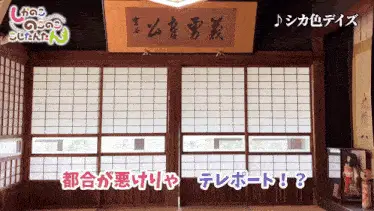 しかのこ
のこのこ
こしたんたん
♪シカ色デイズ
都合が悪けりゃ テレポート！？